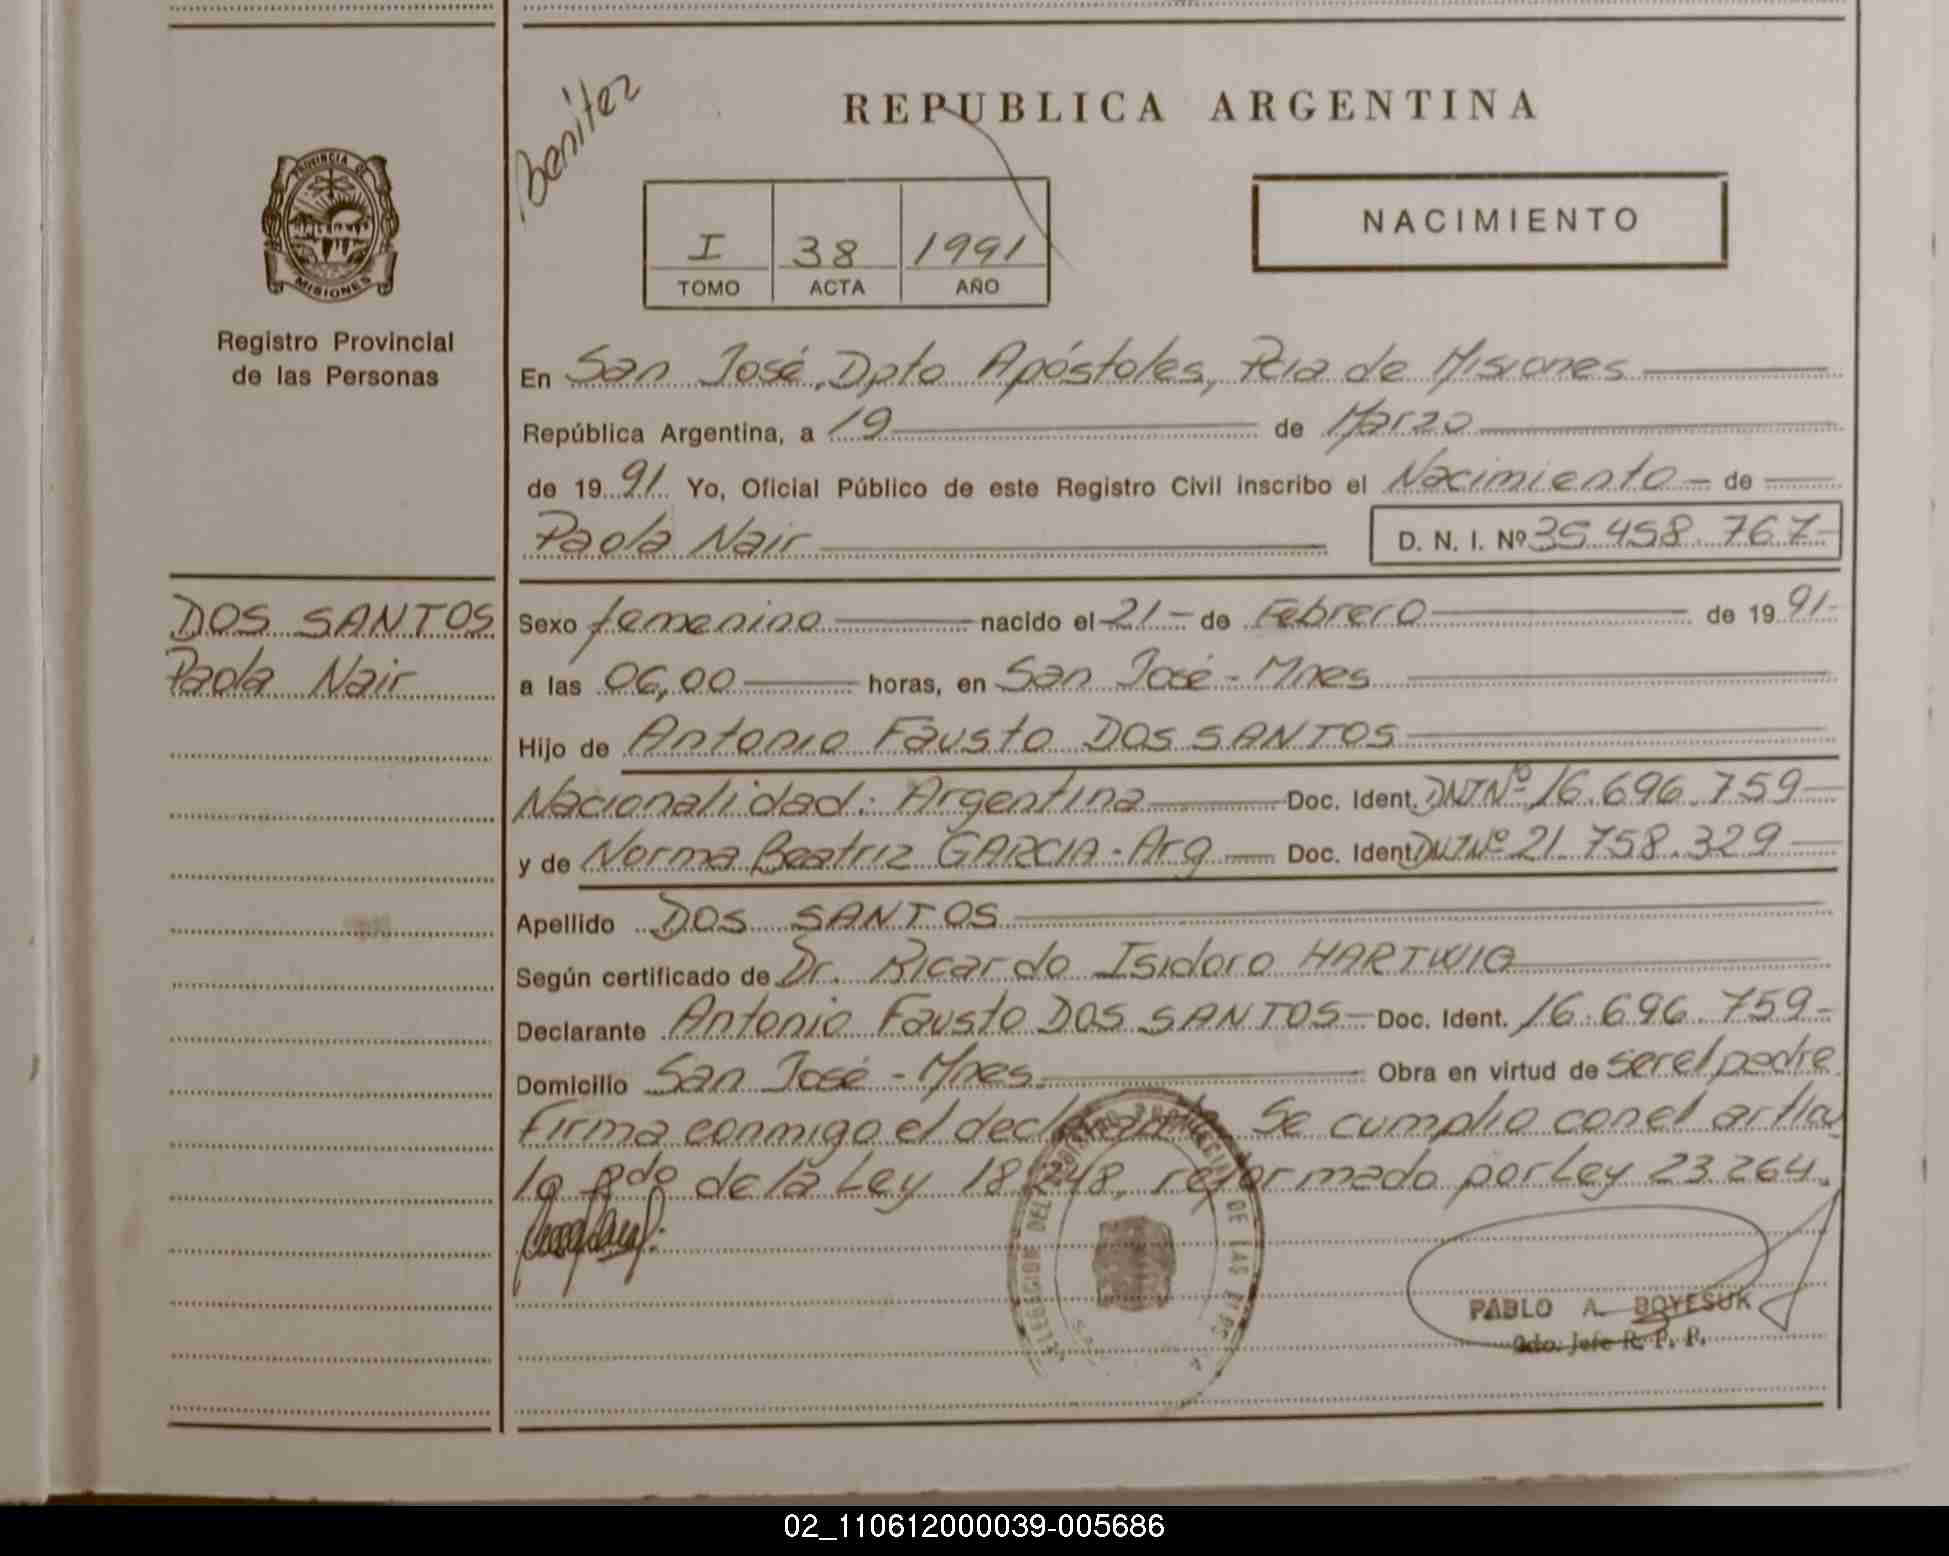 Benítez
REPUBLICA ARGENTINA
PROVINCIA DE
MISIONES
I 38 1991
TOMO ACTA AÑO
NACIMIENTO
Registro Provincial
de las Personas
En San José, Dpto Apóstoles, Pcia de Misiones
República Argentina, a 19 de Marzo
de 1991 Yo, Oficial Público de este Registro Civil inscribo el Nacimiento - de
Paola Nair D. N. I. Nº 35.458.767-
DOS SANTOS
Paola Nair
Sexo femenino nacido el 21 - de Febrero de 1991-
a las 06,00 horas, en San José - Mnes
Hijo de Antonio Fausto DOS SANTOS
Nacionalidad: Argentina Doc. Ident. DNI Nº 16.696.759
y de Norma Beatriz GARCIA - Arg Doc. Ident DNI Nº 21.758.329
Apellido DOS SANTOS
Según certificado de Dr. Ricardo Isidoro HARTWIG
Declarante Antonio Fausto DOS SANTOS - Doc. Ident. 16.696.759-
Domicilio San José - Mnes. Obra en virtud de ser el padre
Firma conmigo el declarante. Se cumplio con el artícu
lo 2do de la Ley 18.248, reformado por Ley 23.264.
DE LAS
PABLO A. BOYESUK
Jefe R. P. P.
02_110612000039-005686